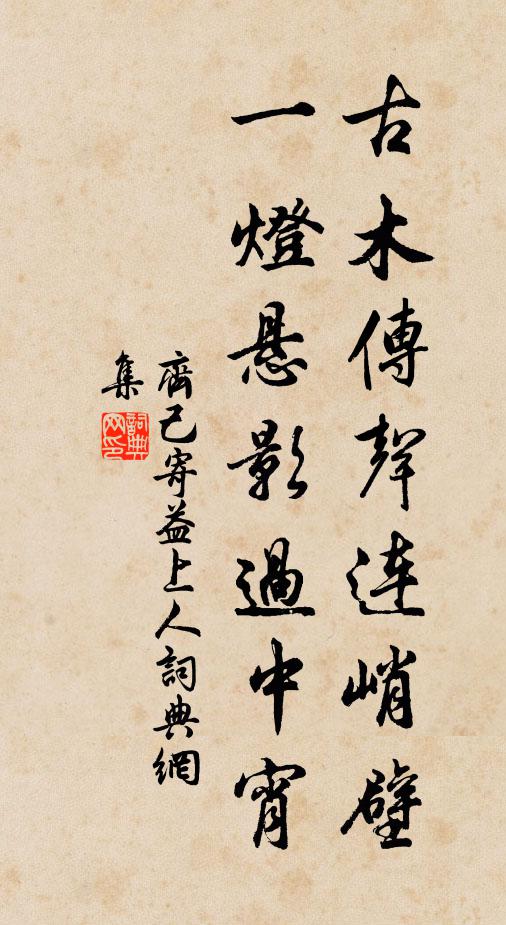 古木傳聲連峭壁
一燈悬影過中宵
齊己寄益上人詞典網
集
詞典网印